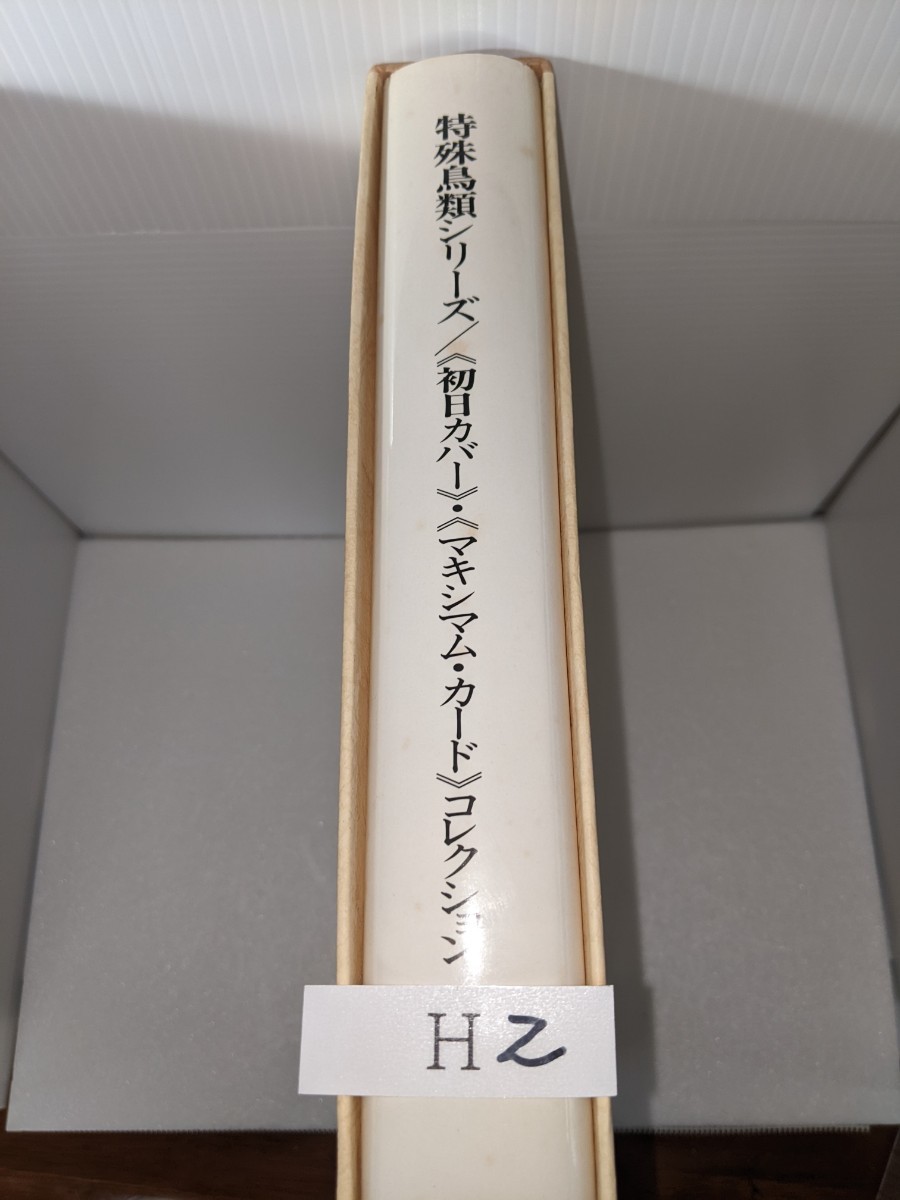 特殊鳥類シリーズ/《初日カバー》・《マキシマム・カード》コレクション
H2